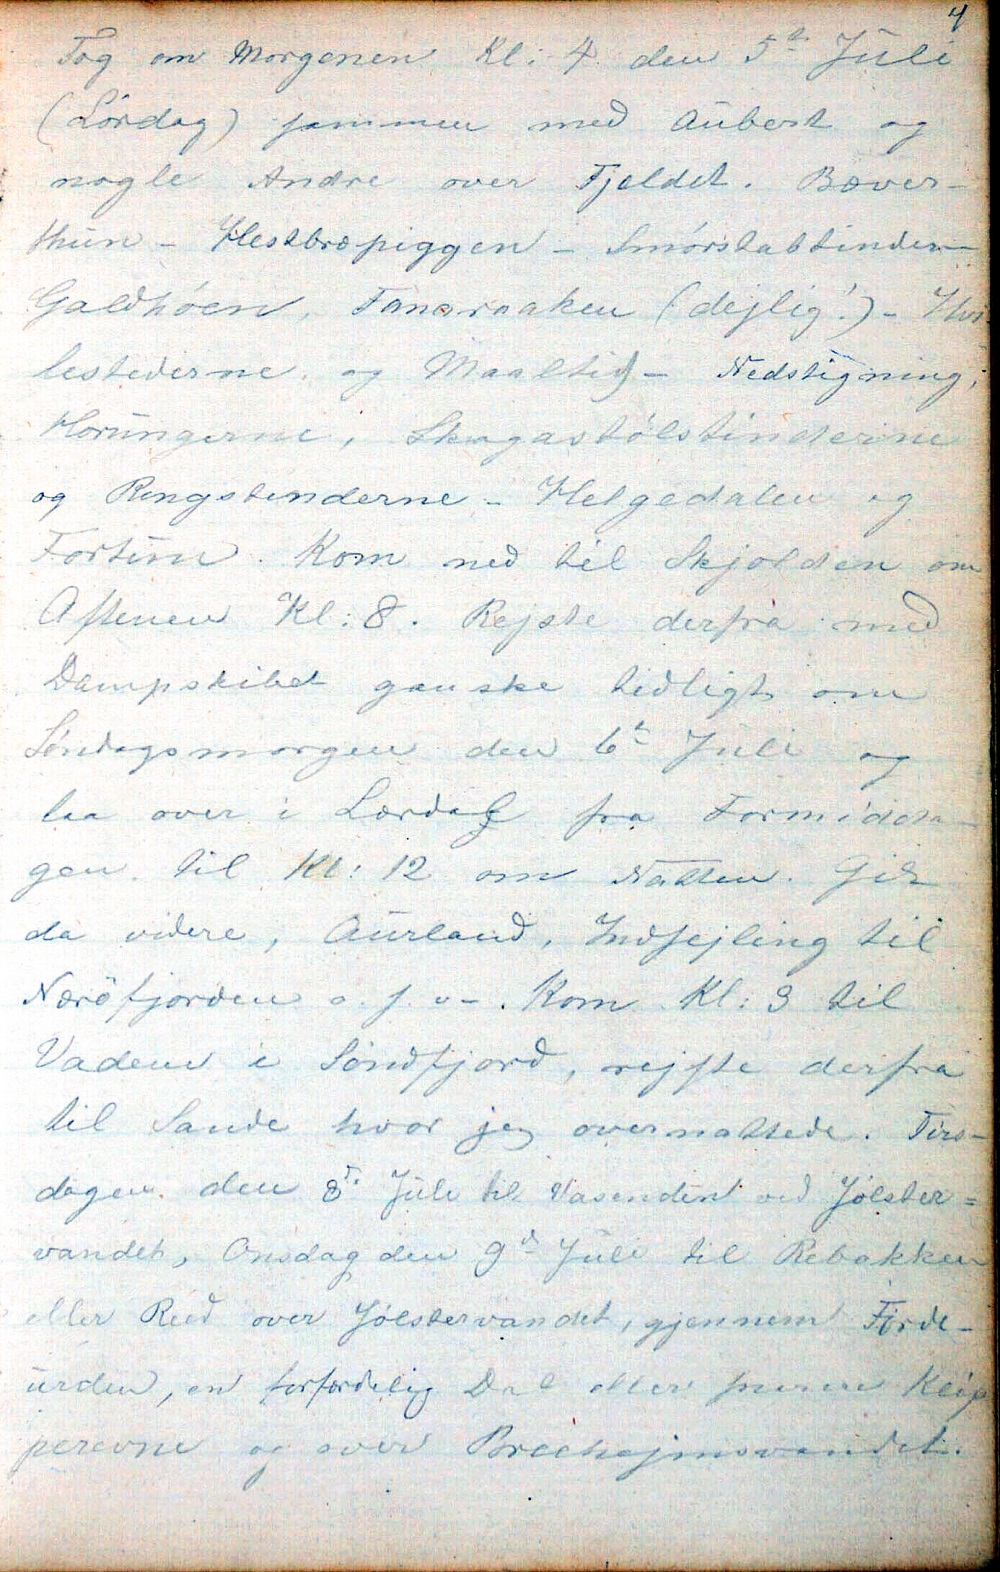 7
Tog om Morgenen Kl: 4 den 5te Juli
(Lørdag) sammen med Aubert og
nogle Andre over Fjeldet. Bæver-
thun - Hestbræpiggen - Smørstabtinden -
Galdhøen, Fanaraaken (dejlig!) - Hvi-
lestederne og Maaltid - Nedstigning,
Horungerne, Skagastølstinderne
og Ringstinderne - Helgedalen og
Fortun. Kom ned til Skjolden om
Aftenen Kl: 8. Rejste derfra med
Dampskibet ganske tidligt om
Søndagsmorgen den 6te Juli og
laa over i Lærdal fra Formidda-
gen til Kl: 12 om Natten. Gik
da videre, Aurland, Indsejling til
Nærøfjorden o. s. v -. Kom Kl: 3 til
Vadem i Søndfjord, rejste derfra
til Sande hvor jeg overnattede. Tirs-
dagen den 8de Juli til Vasenden ved Jølster=
vandet, Onsdag den 9de Juli til Rebakken
eller Reed over Jølstervandet, gjennem Førde-
urden, en forfærdelig Dal eller Klip
perevne og over Breehejmsvandet.